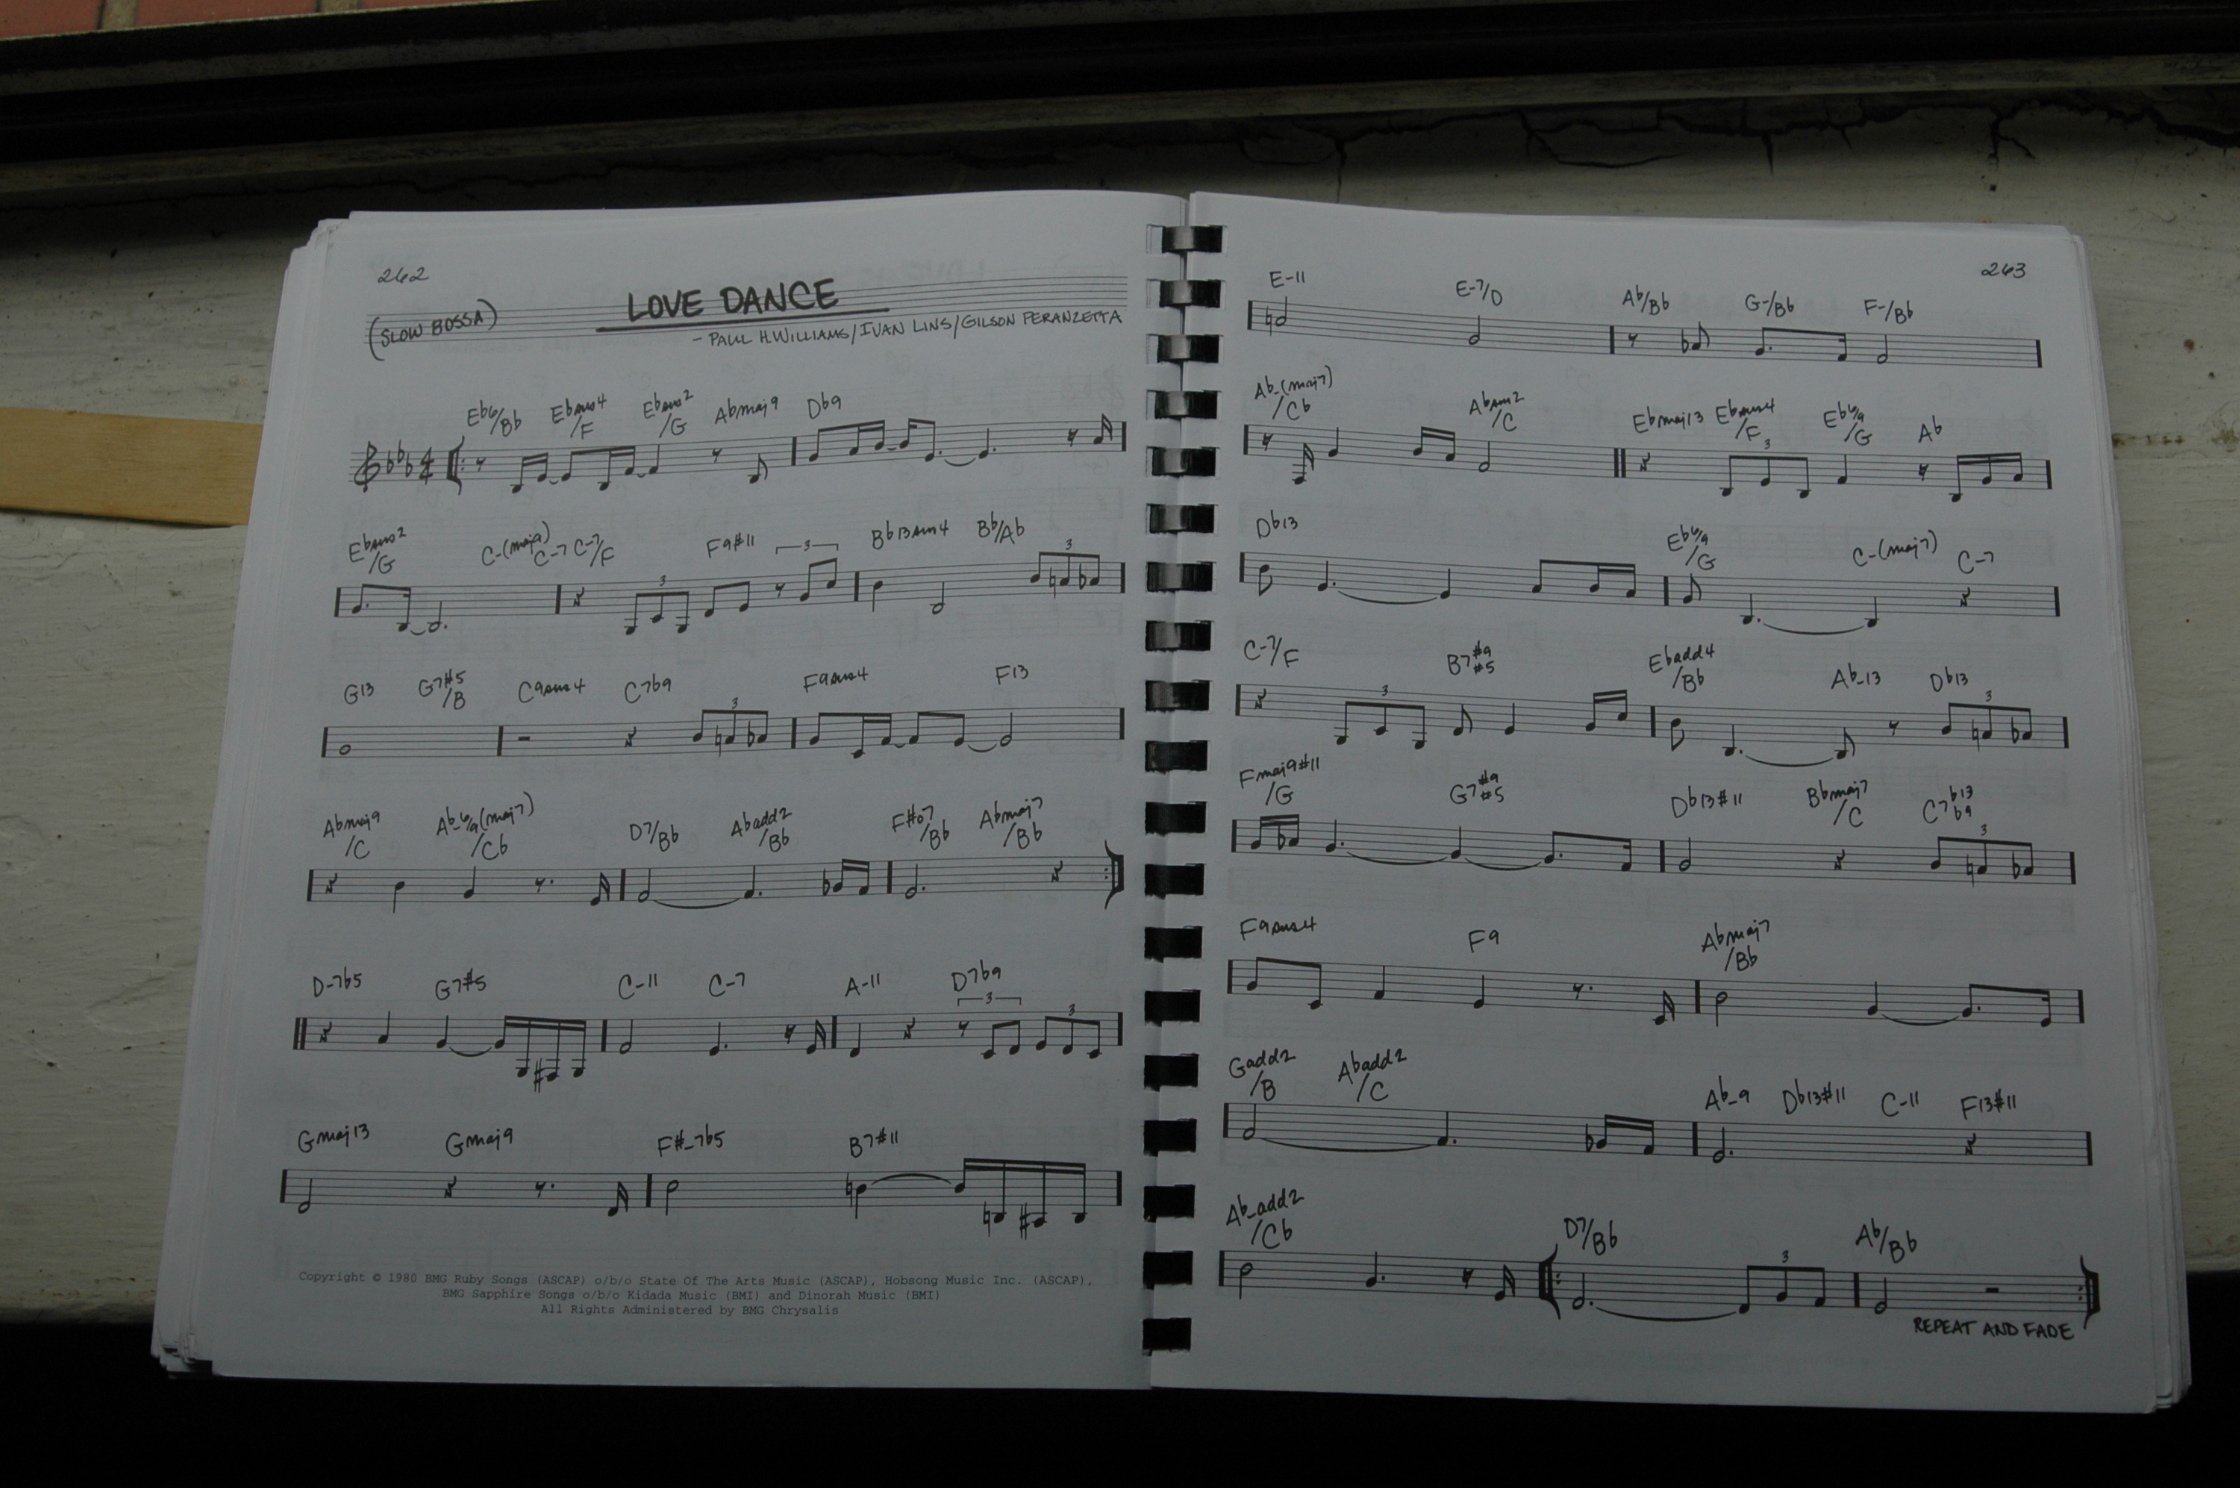 262
LOVE DANCE
(SLOW BOSSA)
- PAUL H. WILLIAMS/IVAN LINS/GILSON PERANZETTA
Eb6/Bb Ebsus4/F Ebsus2/G Abmaj9 Db9
Ebsus2/G C-(maj9) C-7 C-7/F F9#11 3 3 Bb13sus4 Bb/Ab 3
G13 G7#5/B C9sus4 C7b9 3 F9sus4 F13
Abmaj9/C Ab-6/9(maj7)/Cb D7/Bb Abadd2/Bb F#o7/Bb Abmaj7/Bb
D-7b5 G7#5 C-11 C-7 A-11 D7b9 3 3
Gmaj13 Gmaj9 F#-7b5 B7#11
Copyright © 1980 BMG Ruby Songs (ASCAP) o/b/o State Of The Arts Music (ASCAP), Hobsong Music Inc. (ASCAP),
BMG Sapphire Songs o/b/o Kidada Music (BMI) and Dinorah Music (BMI)
All Rights Administered by BMG Chrysalis
263
E-11 E-7/D Ab/Bb G-/Bb F-/Bb
Ab-(maj7)/Cb Absus2/C Ebmaj13 Ebsus4/F 3 Eb6/9/G Ab
Db13 Eb6/9/G C-(maj7) C-7
C-7/F 3 B7#9#5 Ebadd4/Bb Ab-13 Db13 3
Fmaj9#11/G G7#9#5 Db13#11 Bbmaj7/C C7b13b9 3
F9sus4 F9 Abmaj7/Bb
Gadd2/B Abadd2/C Ab-9 Db13#11 C-11 F13#11
Ab-add2/Cb D7/Bb 3 Ab/Bb
REPEAT AND FADE